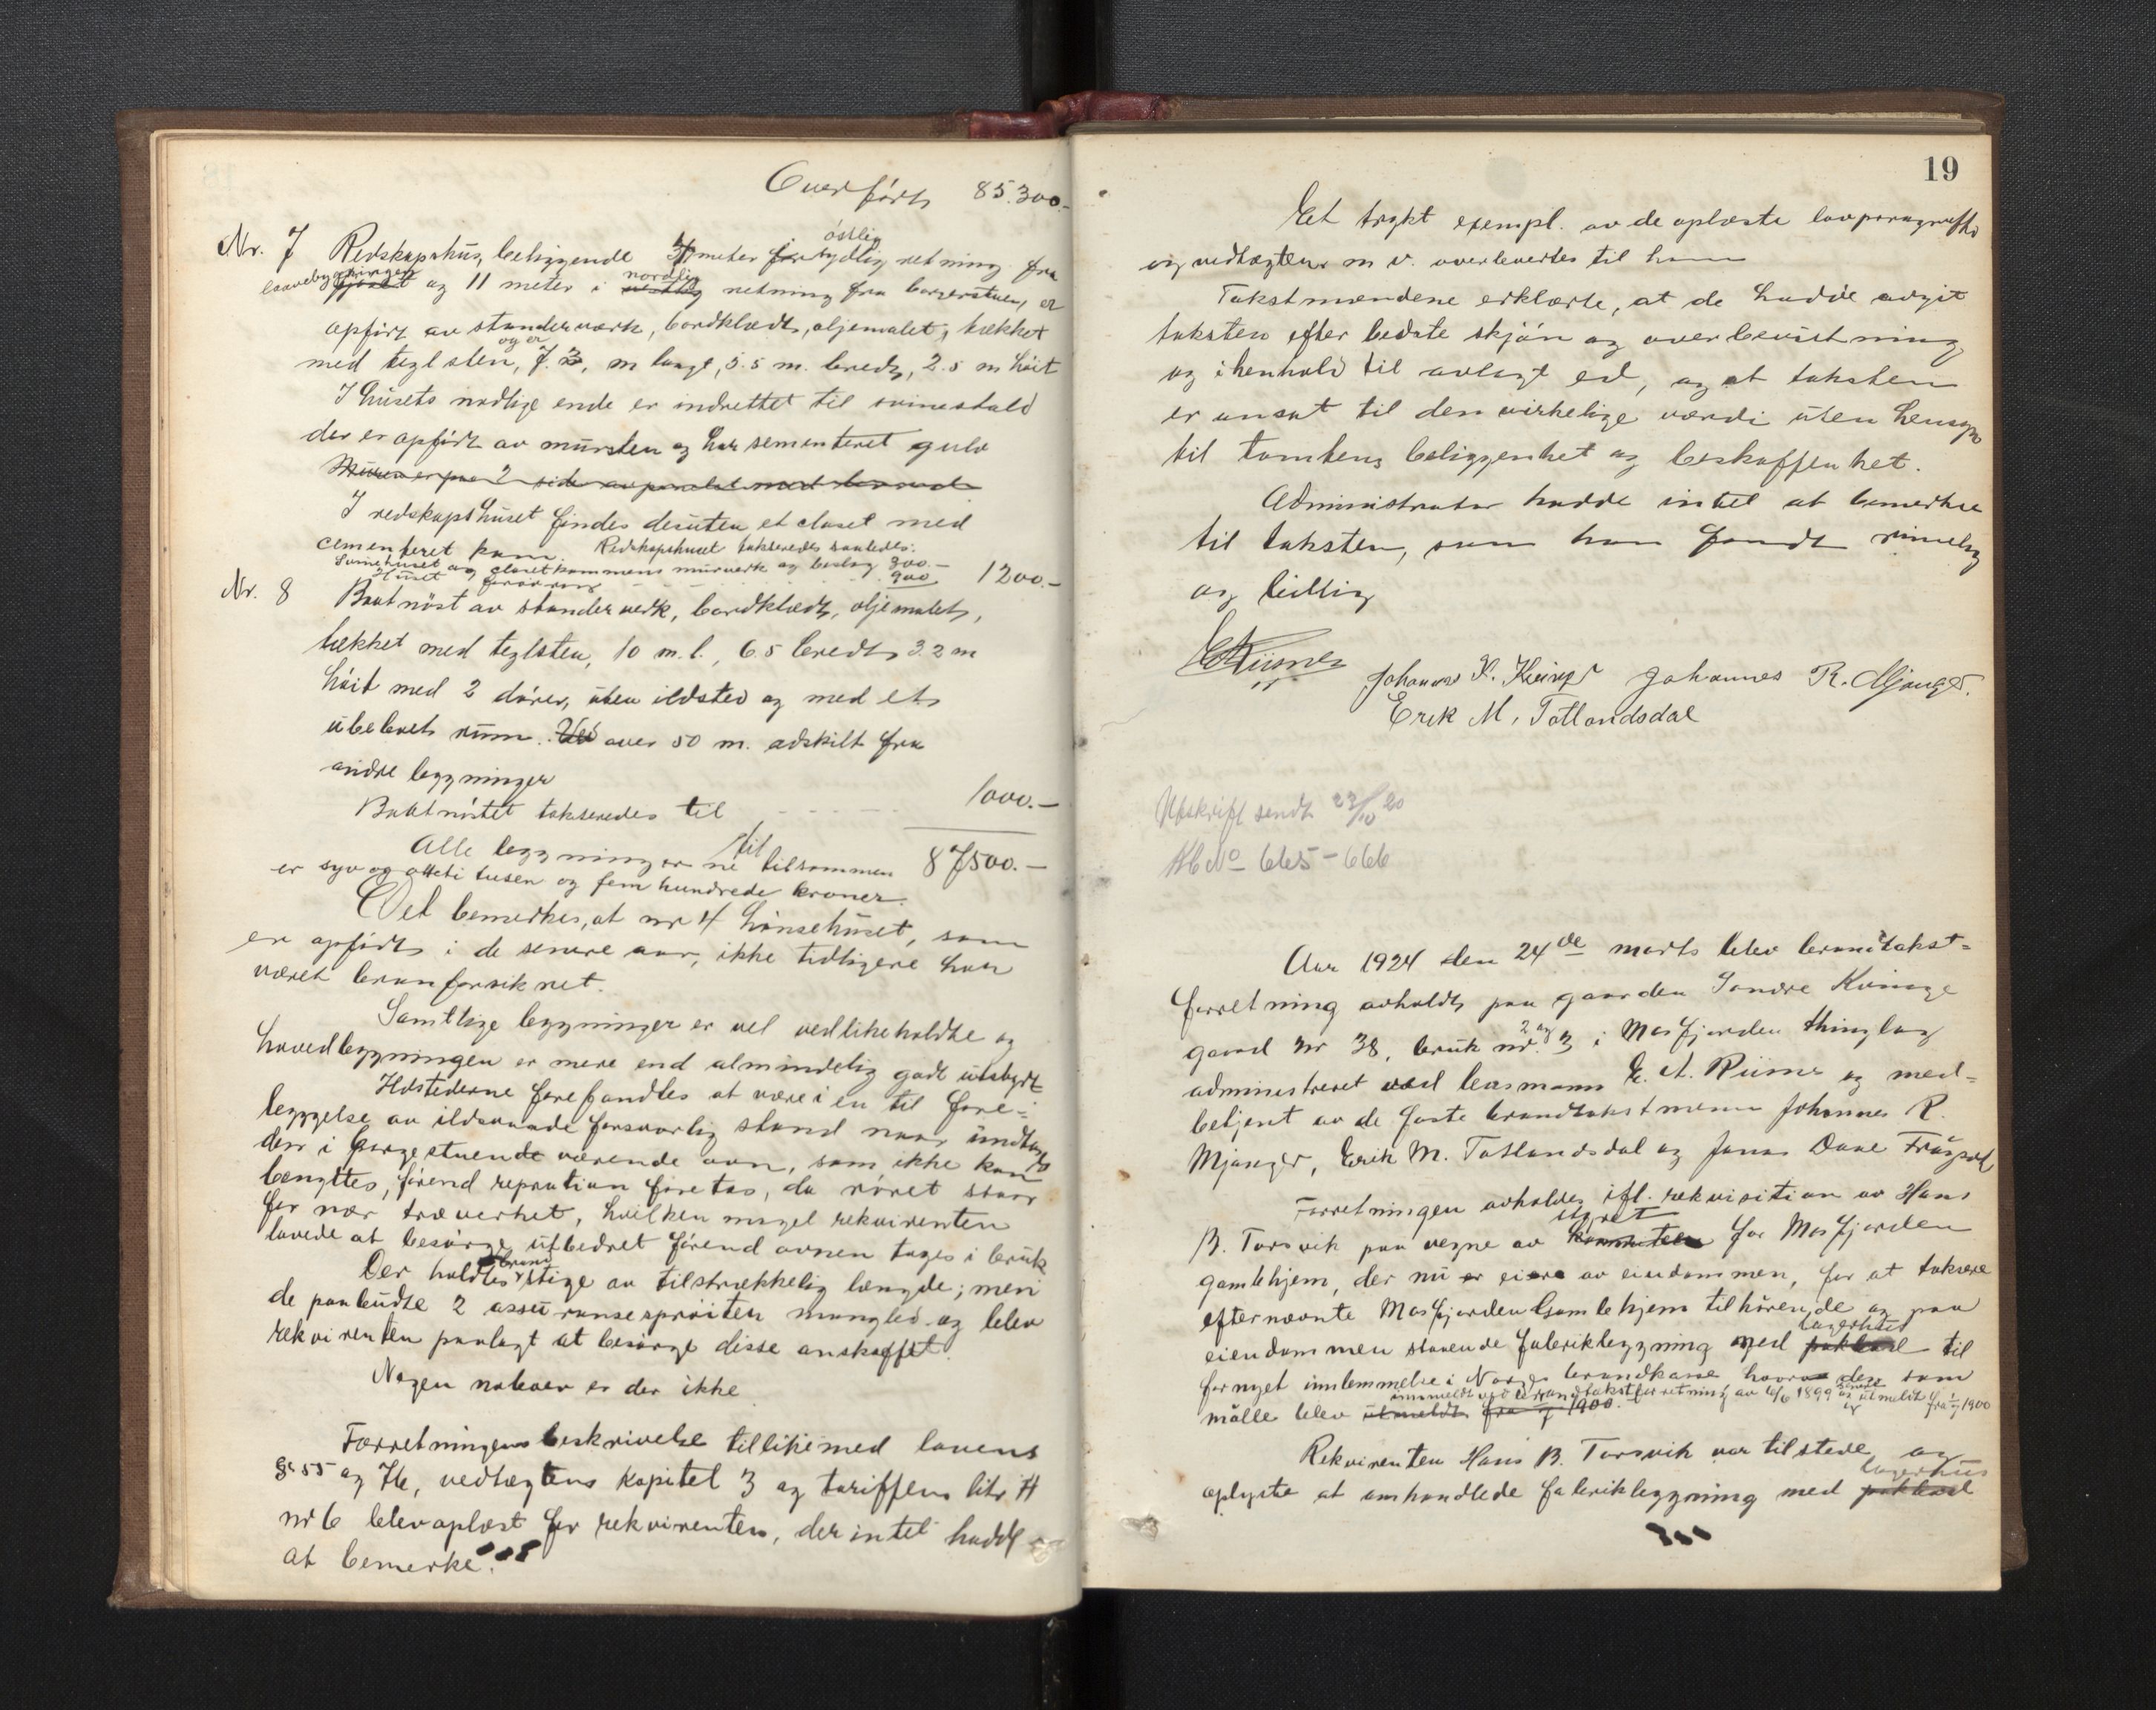 Overført 85.300.-
Nr. 7 Redskapshus beliggende 4 meter i østlig retning fra
laavebygningen og 11 meter i nordlig retning fra borgerstuen, er
opført av stenderverk, bordklædt, oljemalet, og er tækket
med teglsten, 7.3, m langt, 5.5 m. bredt, 2.5 m høit
I husets nordlige ende er indrettet til svinestald
der er opført av mursten og har sementeret gulv
I redskapshuset findes desuten et closet med
cementeret kum. Redskapshuset takseredes saaledes:
Svinehuset og closetkummens murverk og beslag 300.-
Huset forøvrig 900 1200.-
Nr. 8 Baatnøst av stenderverk, bordklædt, oljemalet,
tækket med teglsten, 10 m. l., 6.5 bredt, 3.2 m
høit med 2 dører, uten ildsted og med et
ubeboet rum. over 50 m. adskilt fra
andre bygninger
Baatnøstet takseredes til 1000.-
Alle bygninger til tilsammen 87500.-
er syv og otteti tusen og fem hundrede kroner.
Det bemerkes, at nr 4 hønsehuset, som
er opført i de senere aar, ikke tidligere har
været branforsikret.
Samtlige bygninger er vel vedlikeholdte og
hovedbygningen er mere end almindelig godt utstyrt
Ildstederne forefandtes at være i en til fore-
byggelse av ildsvaade forsvarlig stand naar undtages
den i borgestuen værende ovn, som ikke kan
benyttes, førend repration foretas, da røret staar
for nær træverket, hvilken mangel rekvirenten
lovede at besørge utbedret førend ovnen tages i bruk
Der holdtes brandstige av tilstrækkelig længde; men
de paabudte 2 assuransesprøiten manglet og blev
rekvirenten paalagt at besørge disse anskaffet.
Nogen naboer er der ikke
Forretningens beskrivelse tillikemed lovens
§§ 55 og 76, vedtægtens kapitel 3 og tariffens litr. H
nr 6 blev oplæst for rekvirenten, der intet hadde
at bemerke.
19
Et trykt exempl. av de oplæste lovparagraffer
og vedtægter m v. overlevertes til ham
Takstmændene erklærte, at de hadde avgit
taksten efter bedste skjøn og overbevisning
og i henhold til avlagt ed, og at taksten
er ansat til den virkelige værdi uten hensyn
til tomtens beliggenhet og beskaffenhet.
Administrator hadde intet at bemerke
til taksten, som han fandt rimelig
og billig
Johannes R. Mjanger.
Erik M. Totlandsdal
Utskrift sendt 23/10 20
Ab No 665-666
Aar 1924 den 24de marts blev brandtakst-
forretning avholdt paa gaarden Søndre Kvinge
gaard nr 38, bruk nr. 2 og 3 i Masfjorden thinglag
administreret ved lensmann og med-
betjent av de faste brandtakstmenn Johannes R.
Mjanger, Erik M. Totlandsdal og Jonas Daae
Forretningen avholdes ifl. rekvisition av Hans
B. Torsvik paa vegne av styret for Masfjorden
gamlehjem, der nu er eiere av eiendommen, for at taksere
efternævnte Masfjorden Gamlehjem tilhørende og paa
eiendommen staaende fabrikbygning med lagerhus til
fornyet innlemmelse i Norges brandkasse hvor den som
mølle blev innmeldt ved brandtakstforretning av 6/6 1899 og senere utmeldt fra 1/7 1900
Rekvirenten Hans B. Torsvik var tilstede og
oplyste at omhandlede fabrikbygning med lagerhus